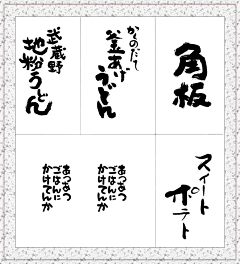 角板
かくのだて
釜あげ
うどん
武蔵野
地粉うどん
スイート
ポテト
あつあつ
ごはんに
かけてんか
あつあつ
ごはんに
かけてんか